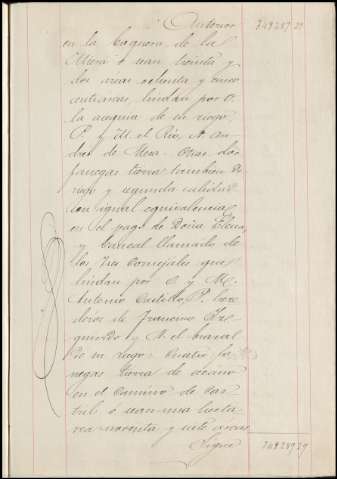 Anterior 749287 21
en la Caquera de la
Mesa ó sean treinta y
dos areas ochenta y cinco
centiareas, lindan por O.
la acequia de su riego
P. y M. el Rio, N.
de Mesa. Otras dos
fanegas tierra tambien de
riego y segunda calidad
con igual equivalencia,
en el pago de Doña Elena
y bancal llamado de
los Tres Cornejales que
lindan por S y M.
Antonio Castillo, P. here
deros de Francisco
y N. el brazal
de su riego. Cuatro fa
negas tierra de secano
en el Camino de Cas
tril, ó sean una hecta
rea noventa y siete areas
Sigue